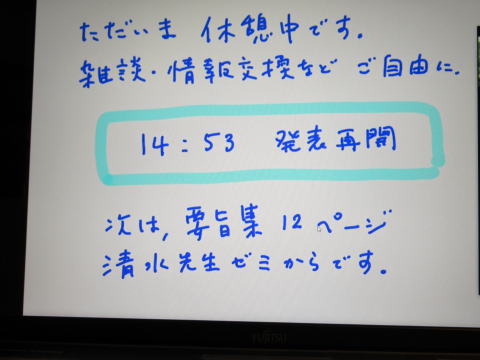 ただいま 休憩中です。
雑談・情報交換など ご自由に。
14:53 発表再開
次は、要旨集 12 ページ
清水先生ゼミからです。
FUJITSU